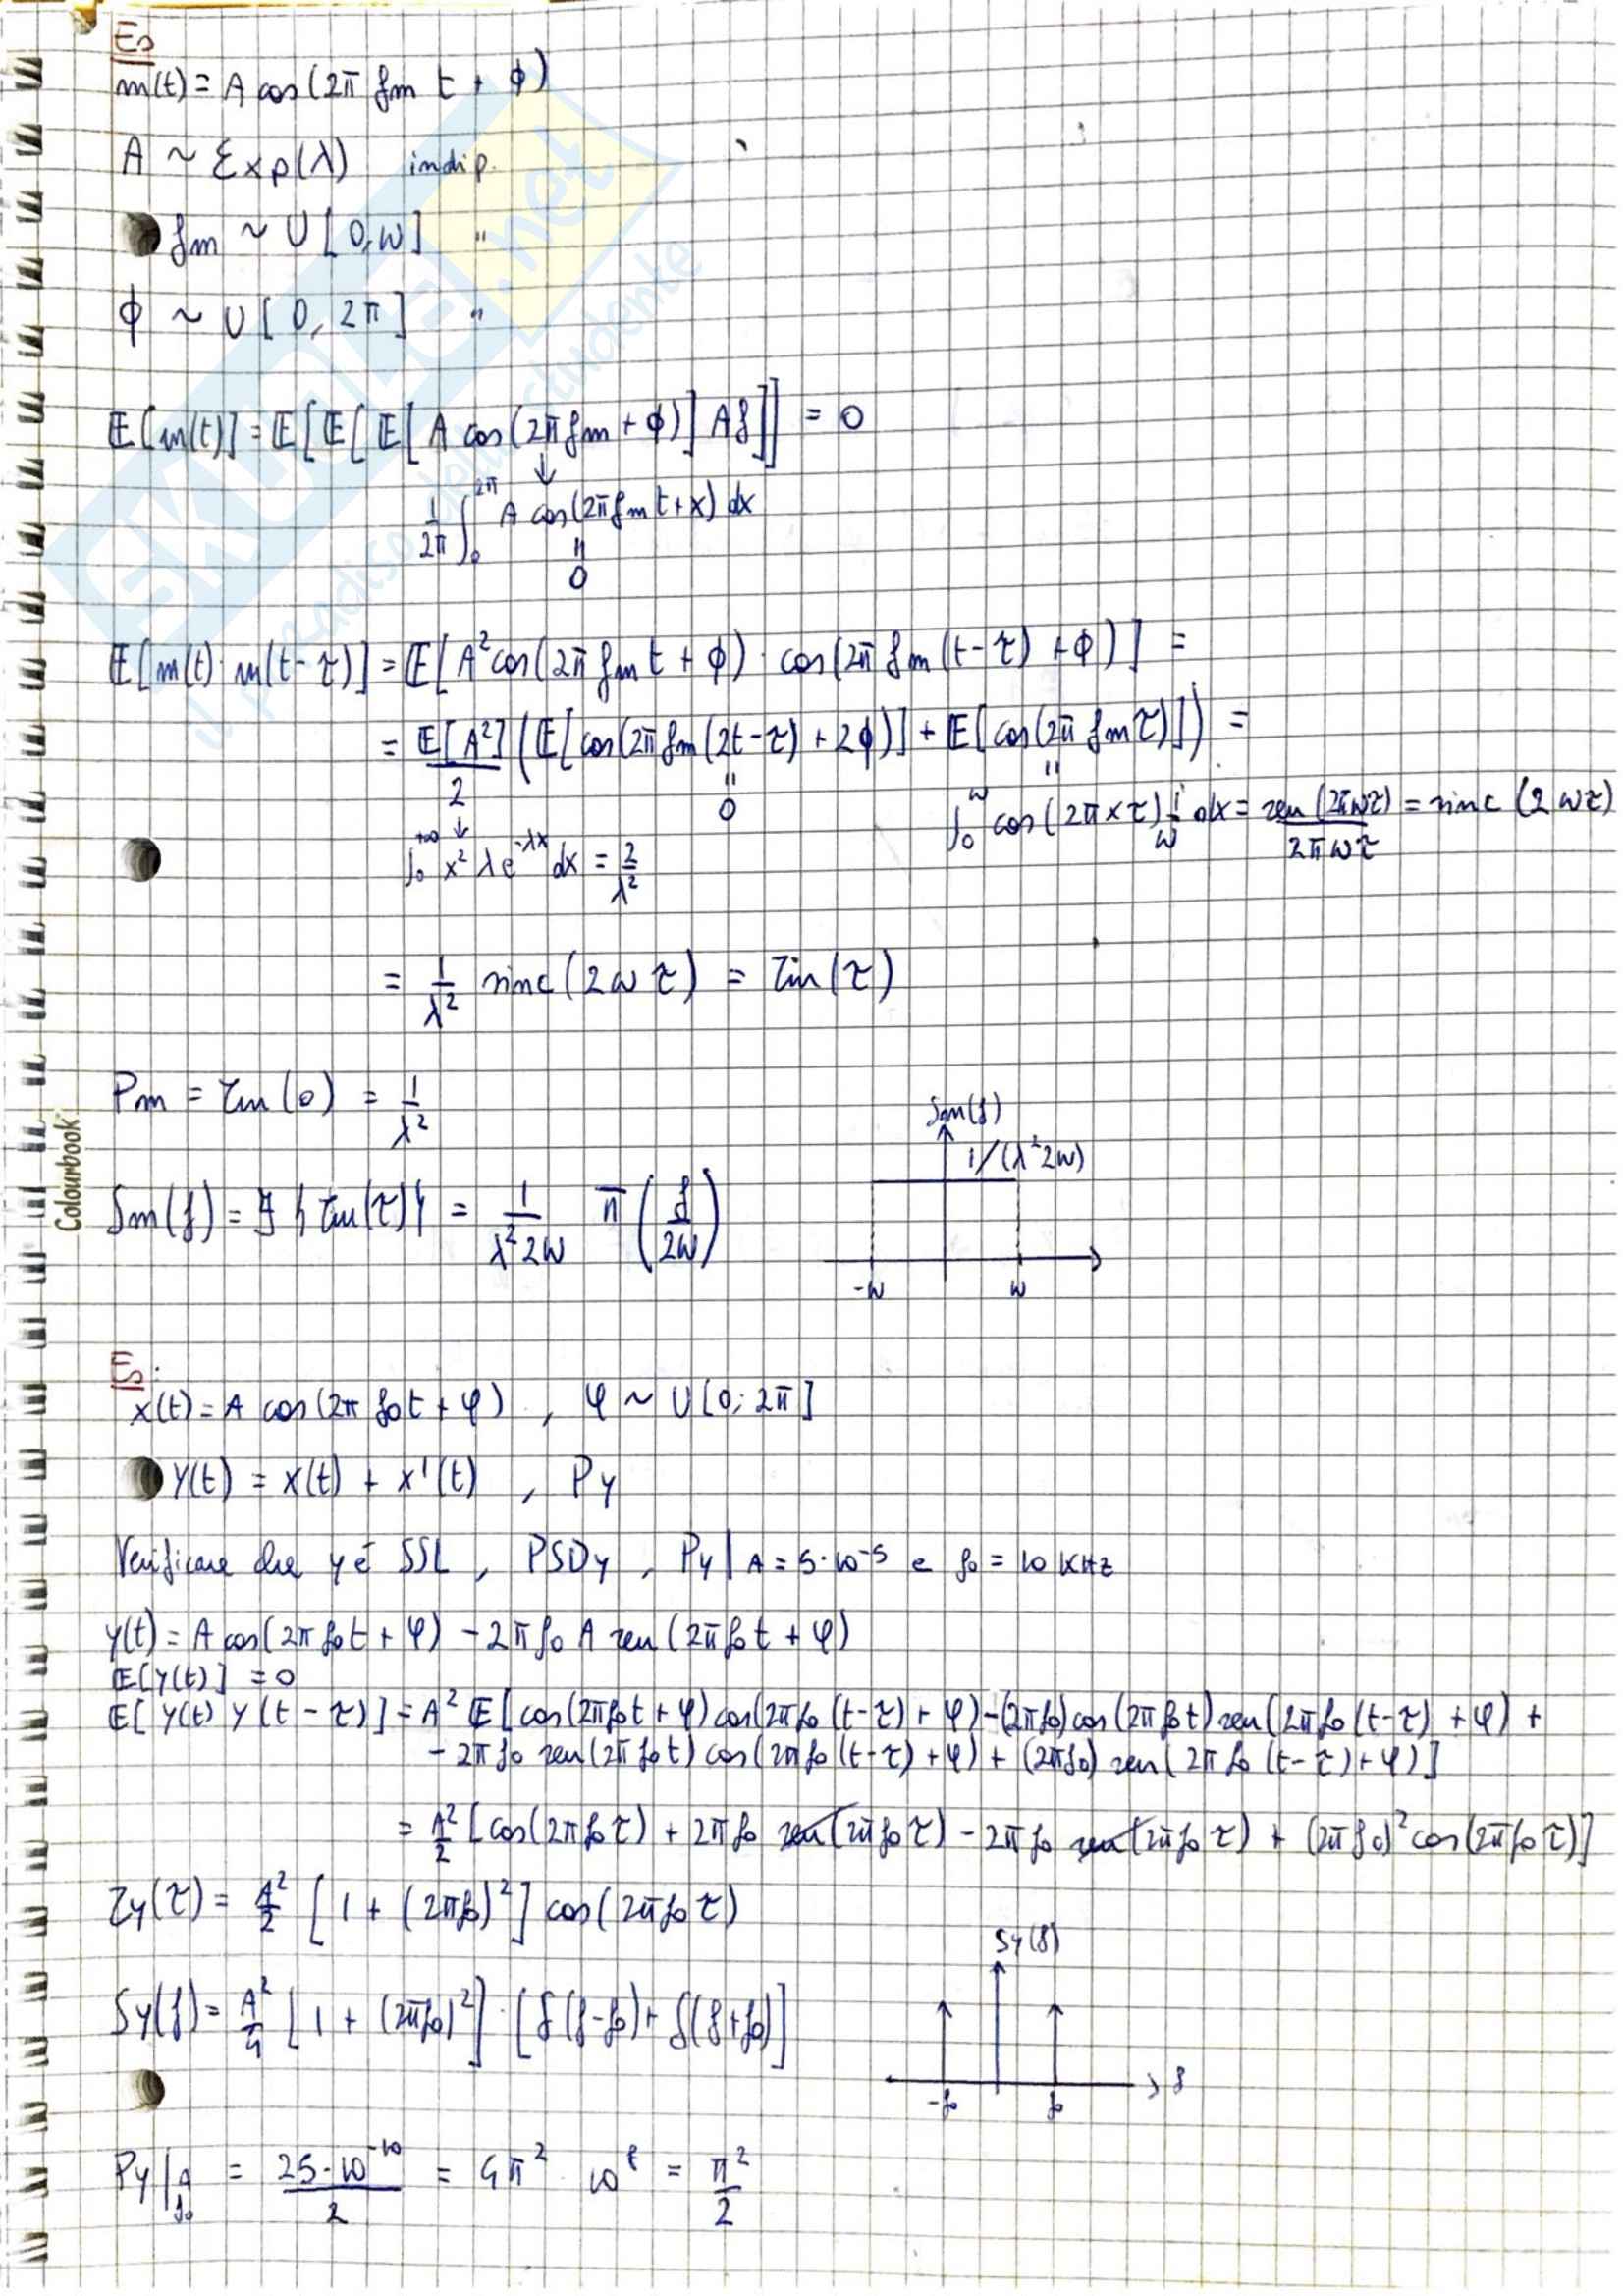 Es
m(t) = A cos(2π fm t + ϕ)
A ~ Exp(λ) indip.
fm ~ U[0,W] "
ϕ ~ U[0, 2π] "
E[m(t)] = E[E[E[A cos(2π fm + ϕ)] A f]] = 0
↓
1/2π ∫₀^2π A cos(2π fm t + x) dx
"
0
E[m(t) · m(t-τ)] = E[A² cos(2π fm t + ϕ) · cos(2π fm (t-τ) + ϕ)] =
= E[A²]/2 (E[cos(2π fm (2t-τ) + 2ϕ)] + E[cos(2π fm τ)]) =
" 0 "
∫₀^W cos(2π x τ) 1/W dx = sen(2πWτ)/2πWτ = sinc(2Wτ)
↓
∫₀^+∞ x² λ e^-λx dx = 2/λ²
= 1/λ² sinc(2Wτ) = rm(τ)
Pm = rm(0) = 1/λ²
Sm(f)
1/(λ²2W)
Sm(f) = F{rm(τ)} = 1/λ²2W π(f/2W)
-W W
Es:
x(t) = A cos(2π f₀t + φ) , φ ~ U[0; 2π]
Y(t) = x(t) + x'(t) , Py
Verificare che y è SSL , PSDy , Py | A = 5·10⁻⁵ e f₀ = 10 KHz
y(t) = A cos(2π f₀t + φ) - 2π f₀ A sen(2π f₀t + φ)
E[Y(t)] = 0
E[Y(t) Y(t-τ)] = A² E[cos(2πf₀t + φ) cos(2πf₀(t-τ) + φ) - (2πf₀) cos(2πf₀t) sen(2πf₀(t-τ) + φ) +
- 2πf₀ sen(2πf₀t) cos(2πf₀(t-τ) + φ) + (2πf₀) sen(2πf₀(t-τ) + φ)]
= A²/2 [cos(2πf₀τ) + 2πf₀ sen(2πf₀τ) - 2πf₀ sen(2πf₀τ) + (2πf₀)² cos(2πf₀τ)]
ry(τ) = A²/2 [1 + (2πf₀)²] cos(2πf₀τ)
Sy(f)
Sy(f) = A²/4 [1 + (2πf₀)²] · [δ(f-f₀) + δ(f+f₀)]
-f₀ f₀ f
Py|A f₀ = 25·10⁻¹⁰/2 = 4π² 10⁸ = π²/2
Colourbook
SKUOLA.net
il paradiso dello studente